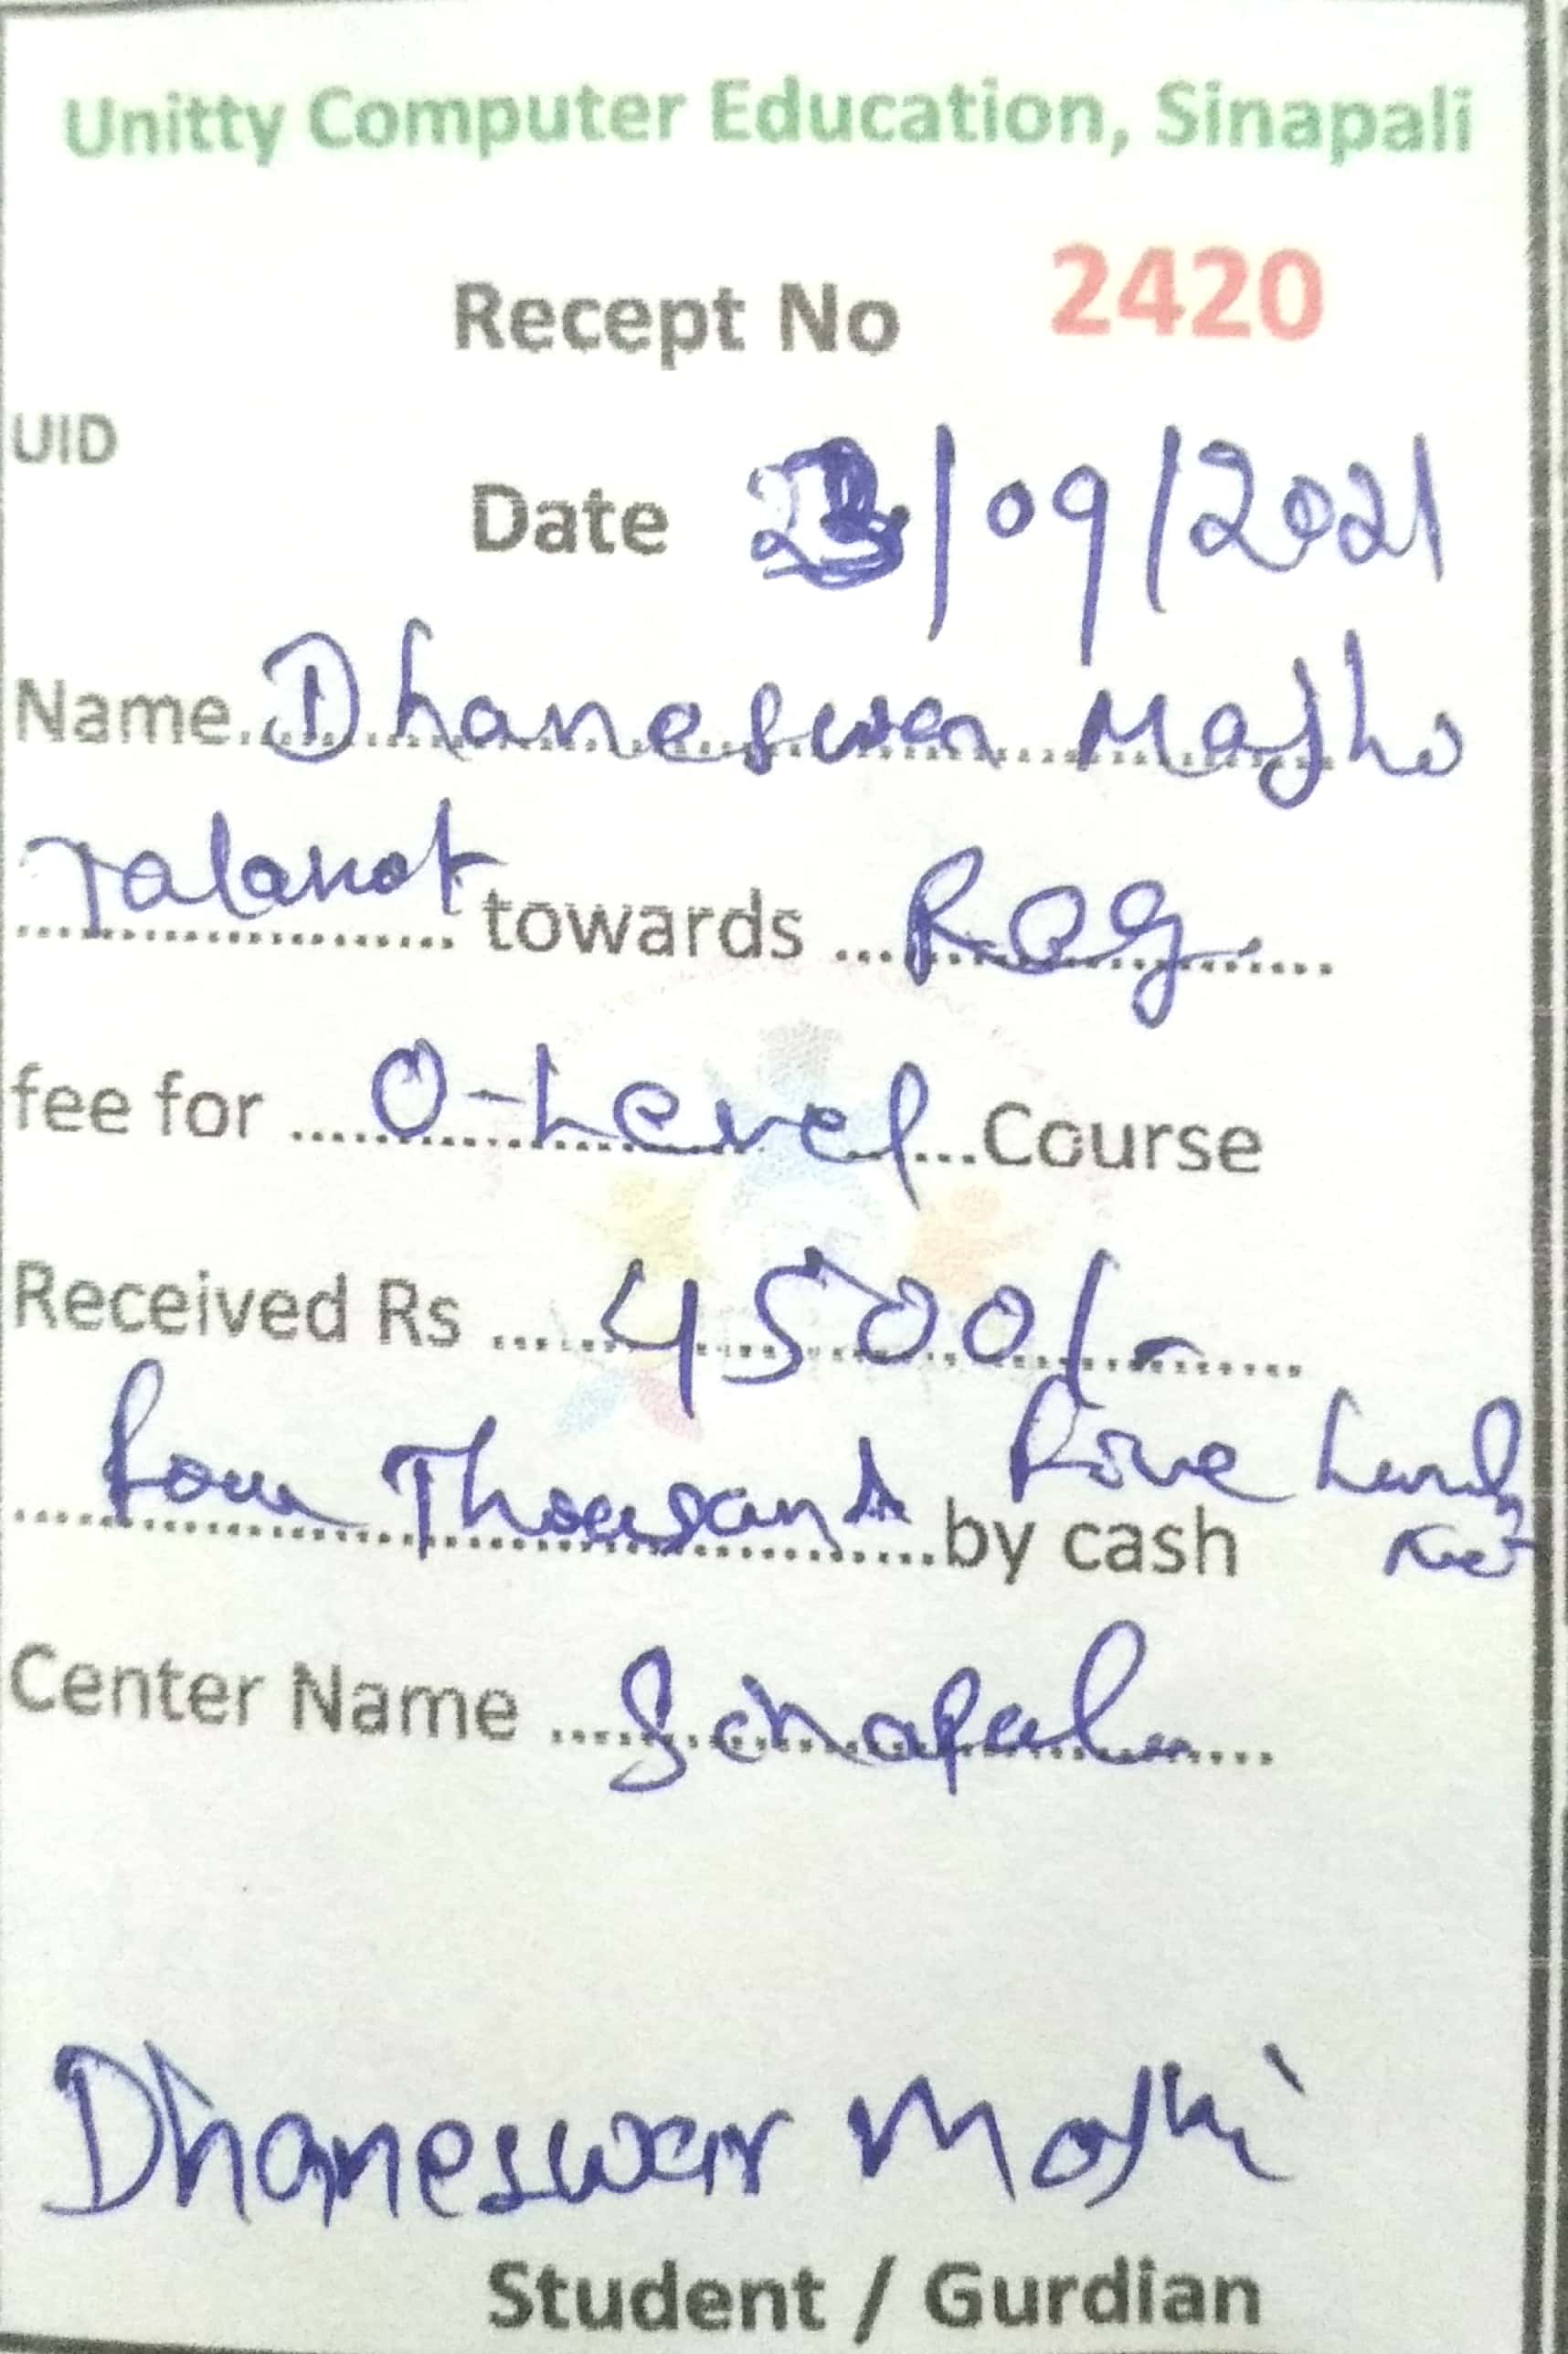 Unitty Computer Education, Sinapali
Recept No 2420
UID
Date 23/09/2021
Name Dhaneswar Majhi
Talakot towards Reg.
fee for O-Level Course
Received Rs 4500/-
Four Thousand Five hund
by cash
Center Name Sinapali
Dhaneswar Majhi
Student / Gurdian